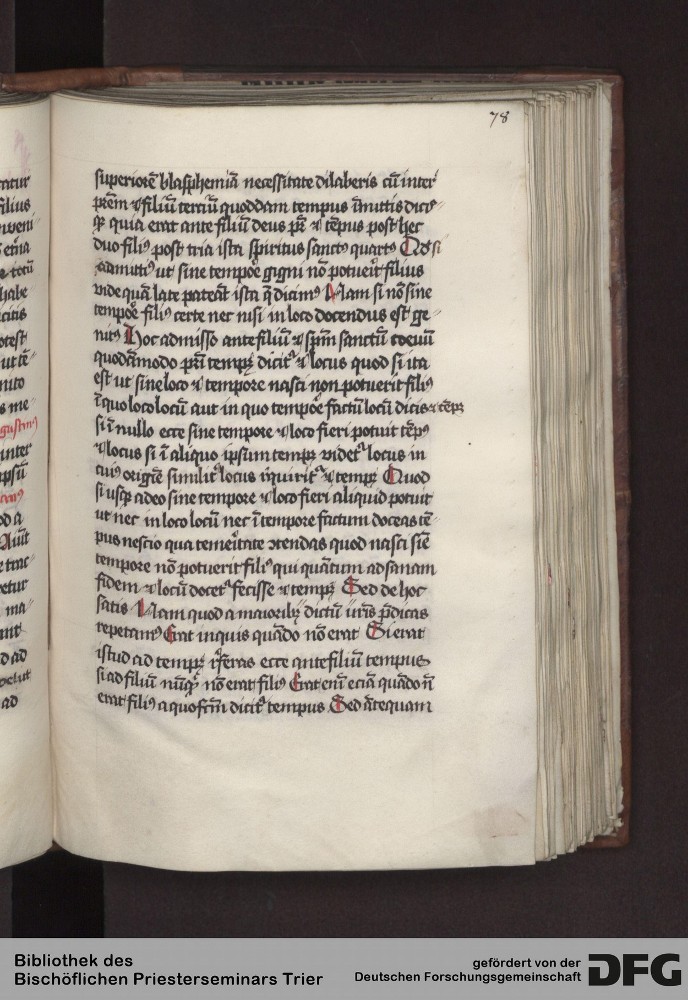 78
superiorē blasphemiā necessitate dilaberis cū inter
prēm & filiū terciū quoddam tempus īmittis
quia erat ante filiū deus pr̄ & tēpus post hec
duo filiꝰ post tria ista spiritus sanctꝰ quartꝰ Qđ si
admittiꝰ ut sine tempor̄e gigni nō potuerit filius
vide quā late pateāt ista q̄ dicimꝰ Nam si nō sine
tempor̄e filiꝰ certe nec nisi in loco docendus est ge-
nitꝰ Hoc admisso ante filiū & sp̄m sanctū coeuū
quodāmodo pr̄i tempꝰ dicitʳ & locus quod si ita
est ut sine loco & tempore nasci non potuerit filiꝰ
ī quo loco locū aut in quo tempor̄e factū locū dicis & tēpꝰ
si ī nullo ecce sine tempore & loco fieri potuit tēpꝰ
& locus si ī aliquo ipsum tempꝰ videtʳ locus in
cuiꝰ origīe similitʳ locus īquiritʳ & tempꝰ Quod
si usqꝫ adeo sine tempore & loco fieri aliquid potuit
ut nec in loco locū nec ī tempore factum doceas tē-
pus nescio qua temeritate ꝯtendas quod nasci sine
tempore nō potuerit filiꝰ qui quātum ad sanam
fidem & locū docetʳ fecisse & tempꝰ Sed de hoc
satis Nam quod a maioribꝫ dictū ur̄is p̄dicas
repetamꝰ Erat inquis quādo nō erat Si erat
istud ad tempꝰ r̄feras ecce ante filiū tempus
si ad filiū nūqꝫ nō erat filiꝰ Erat enī eciā quādo n̄
erat filiꝰ a quo fcm̄ dicitʳ tempus Sed ātequam
Bibliothek des
Bischöflichen Priesterseminars Trier
gefördert von der
Deutschen Forschungsgemeinschaft
DFG